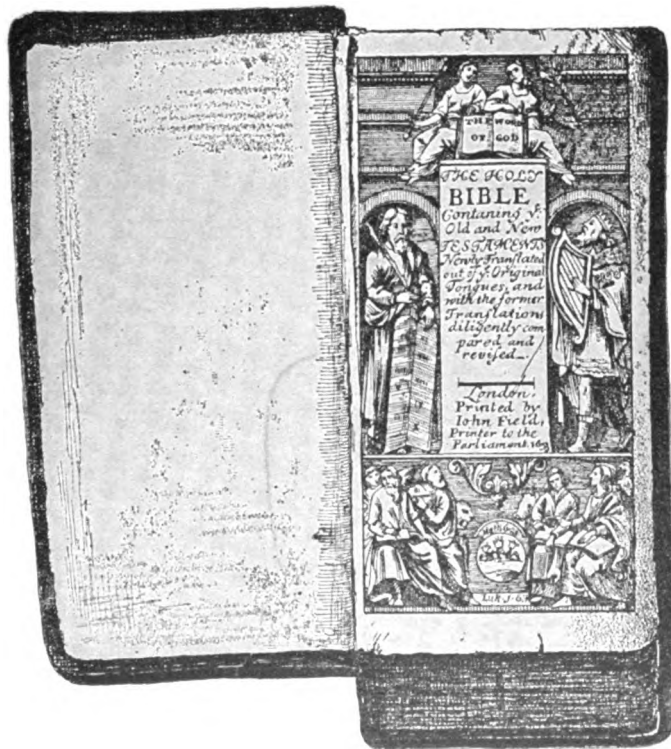 THE WORD
OF GOD
THE HOLY
BIBLE
Contaning yͤ
Old and New
TESTAMENTS
Newly Translated
out of yͤ Original
Tongues, and
with the former
Translations
diligently com
pared and
revised.
London.
Printed by
Iohn Field,
Printer to the
Parliament.
Luk. 1.